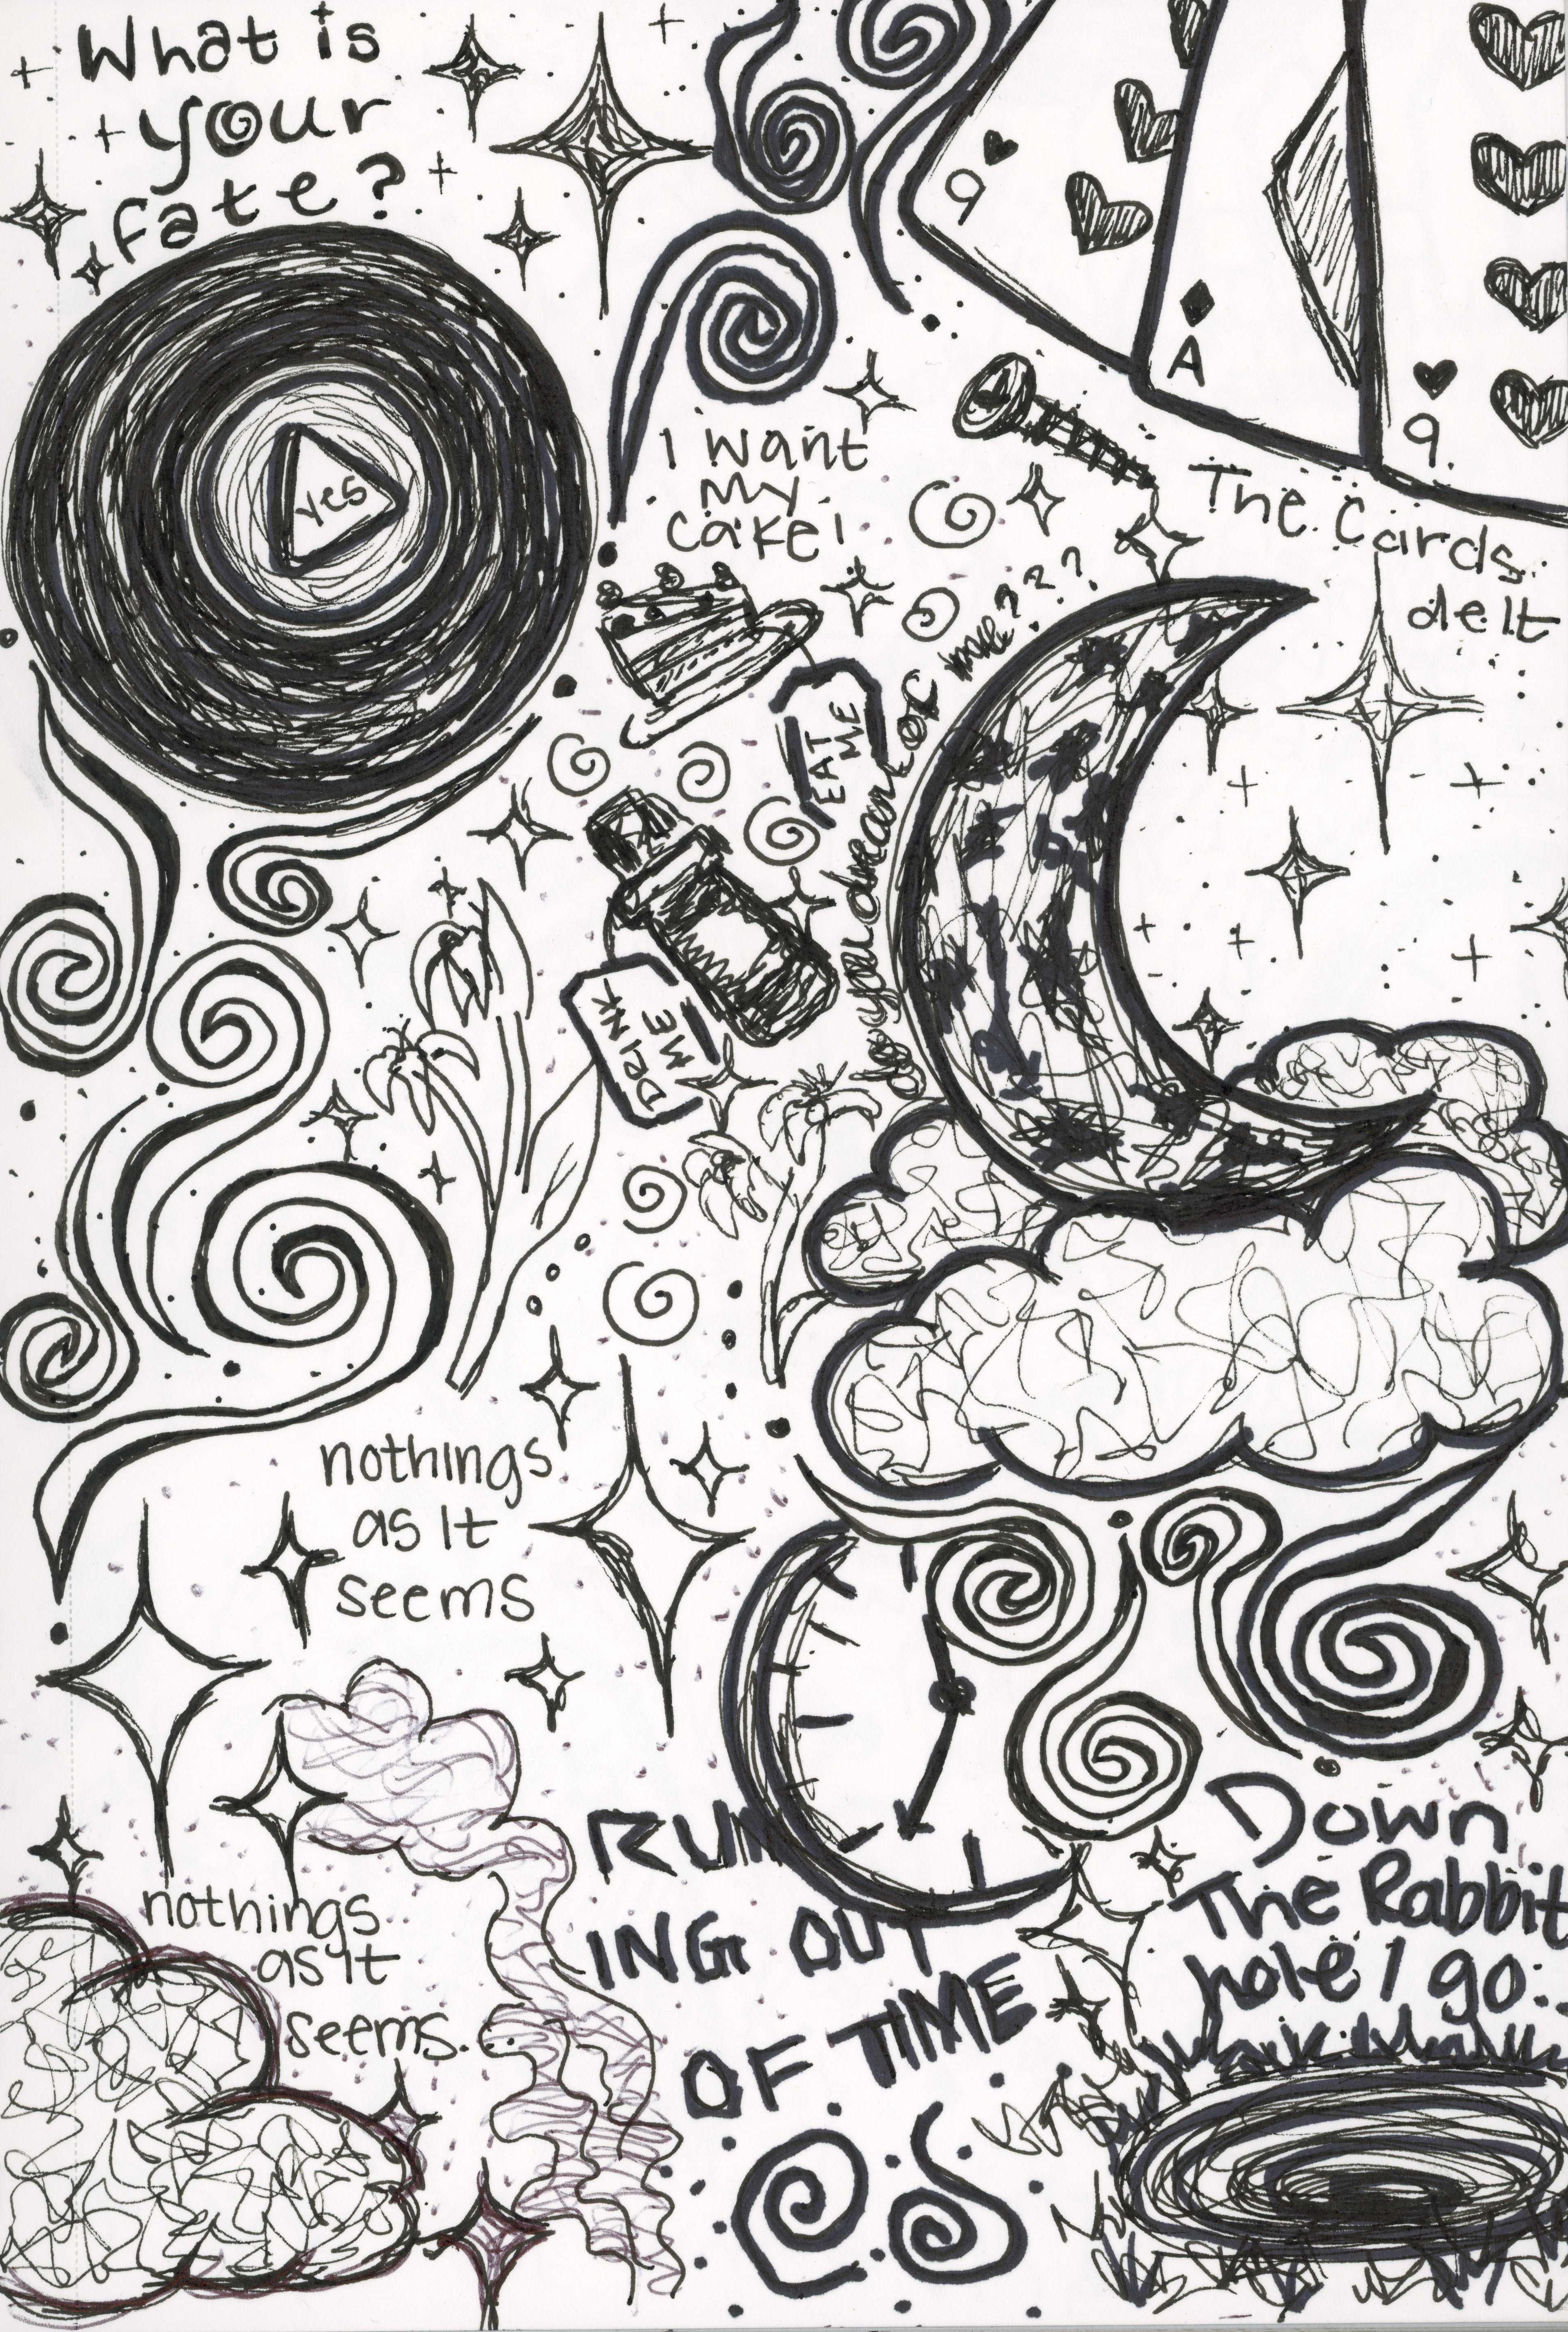 What is
your
fate?
yes
9
A
9
The Cards
delt
I want
my
cake!
EAT
ME
DRINK
ME
do you dream of me????
nothings
as It
seems
nothings
as It
seems.
RUN
ING OUT
OF TIME
Down
The Rabbit
hole I go.